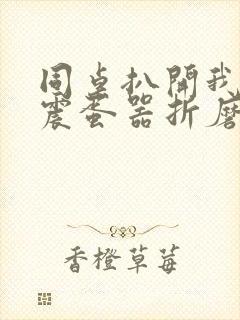 同桌扒開我
震蛋器折磨
香橙草莓